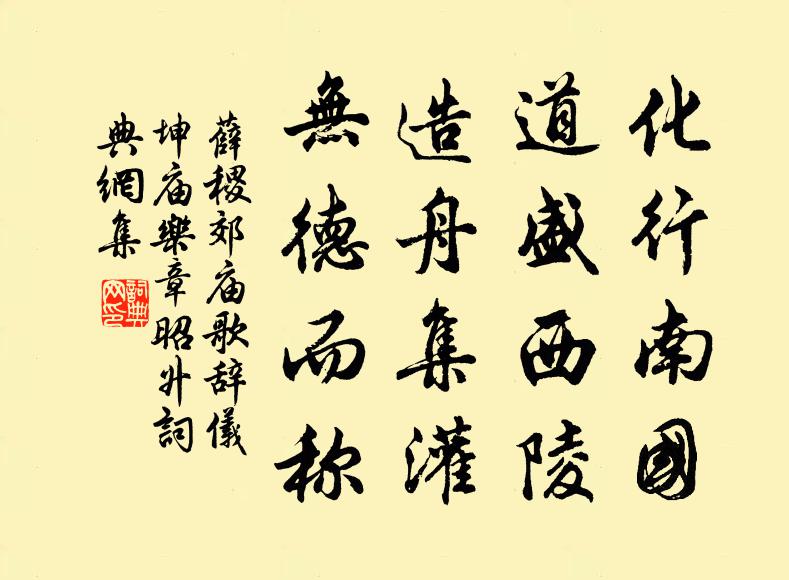 化行南國
道盛西陵
造舟集灌
無德而称
薛稷郊庙歌辞儀
坤庙樂章昭升詞
典網集
詞典网印